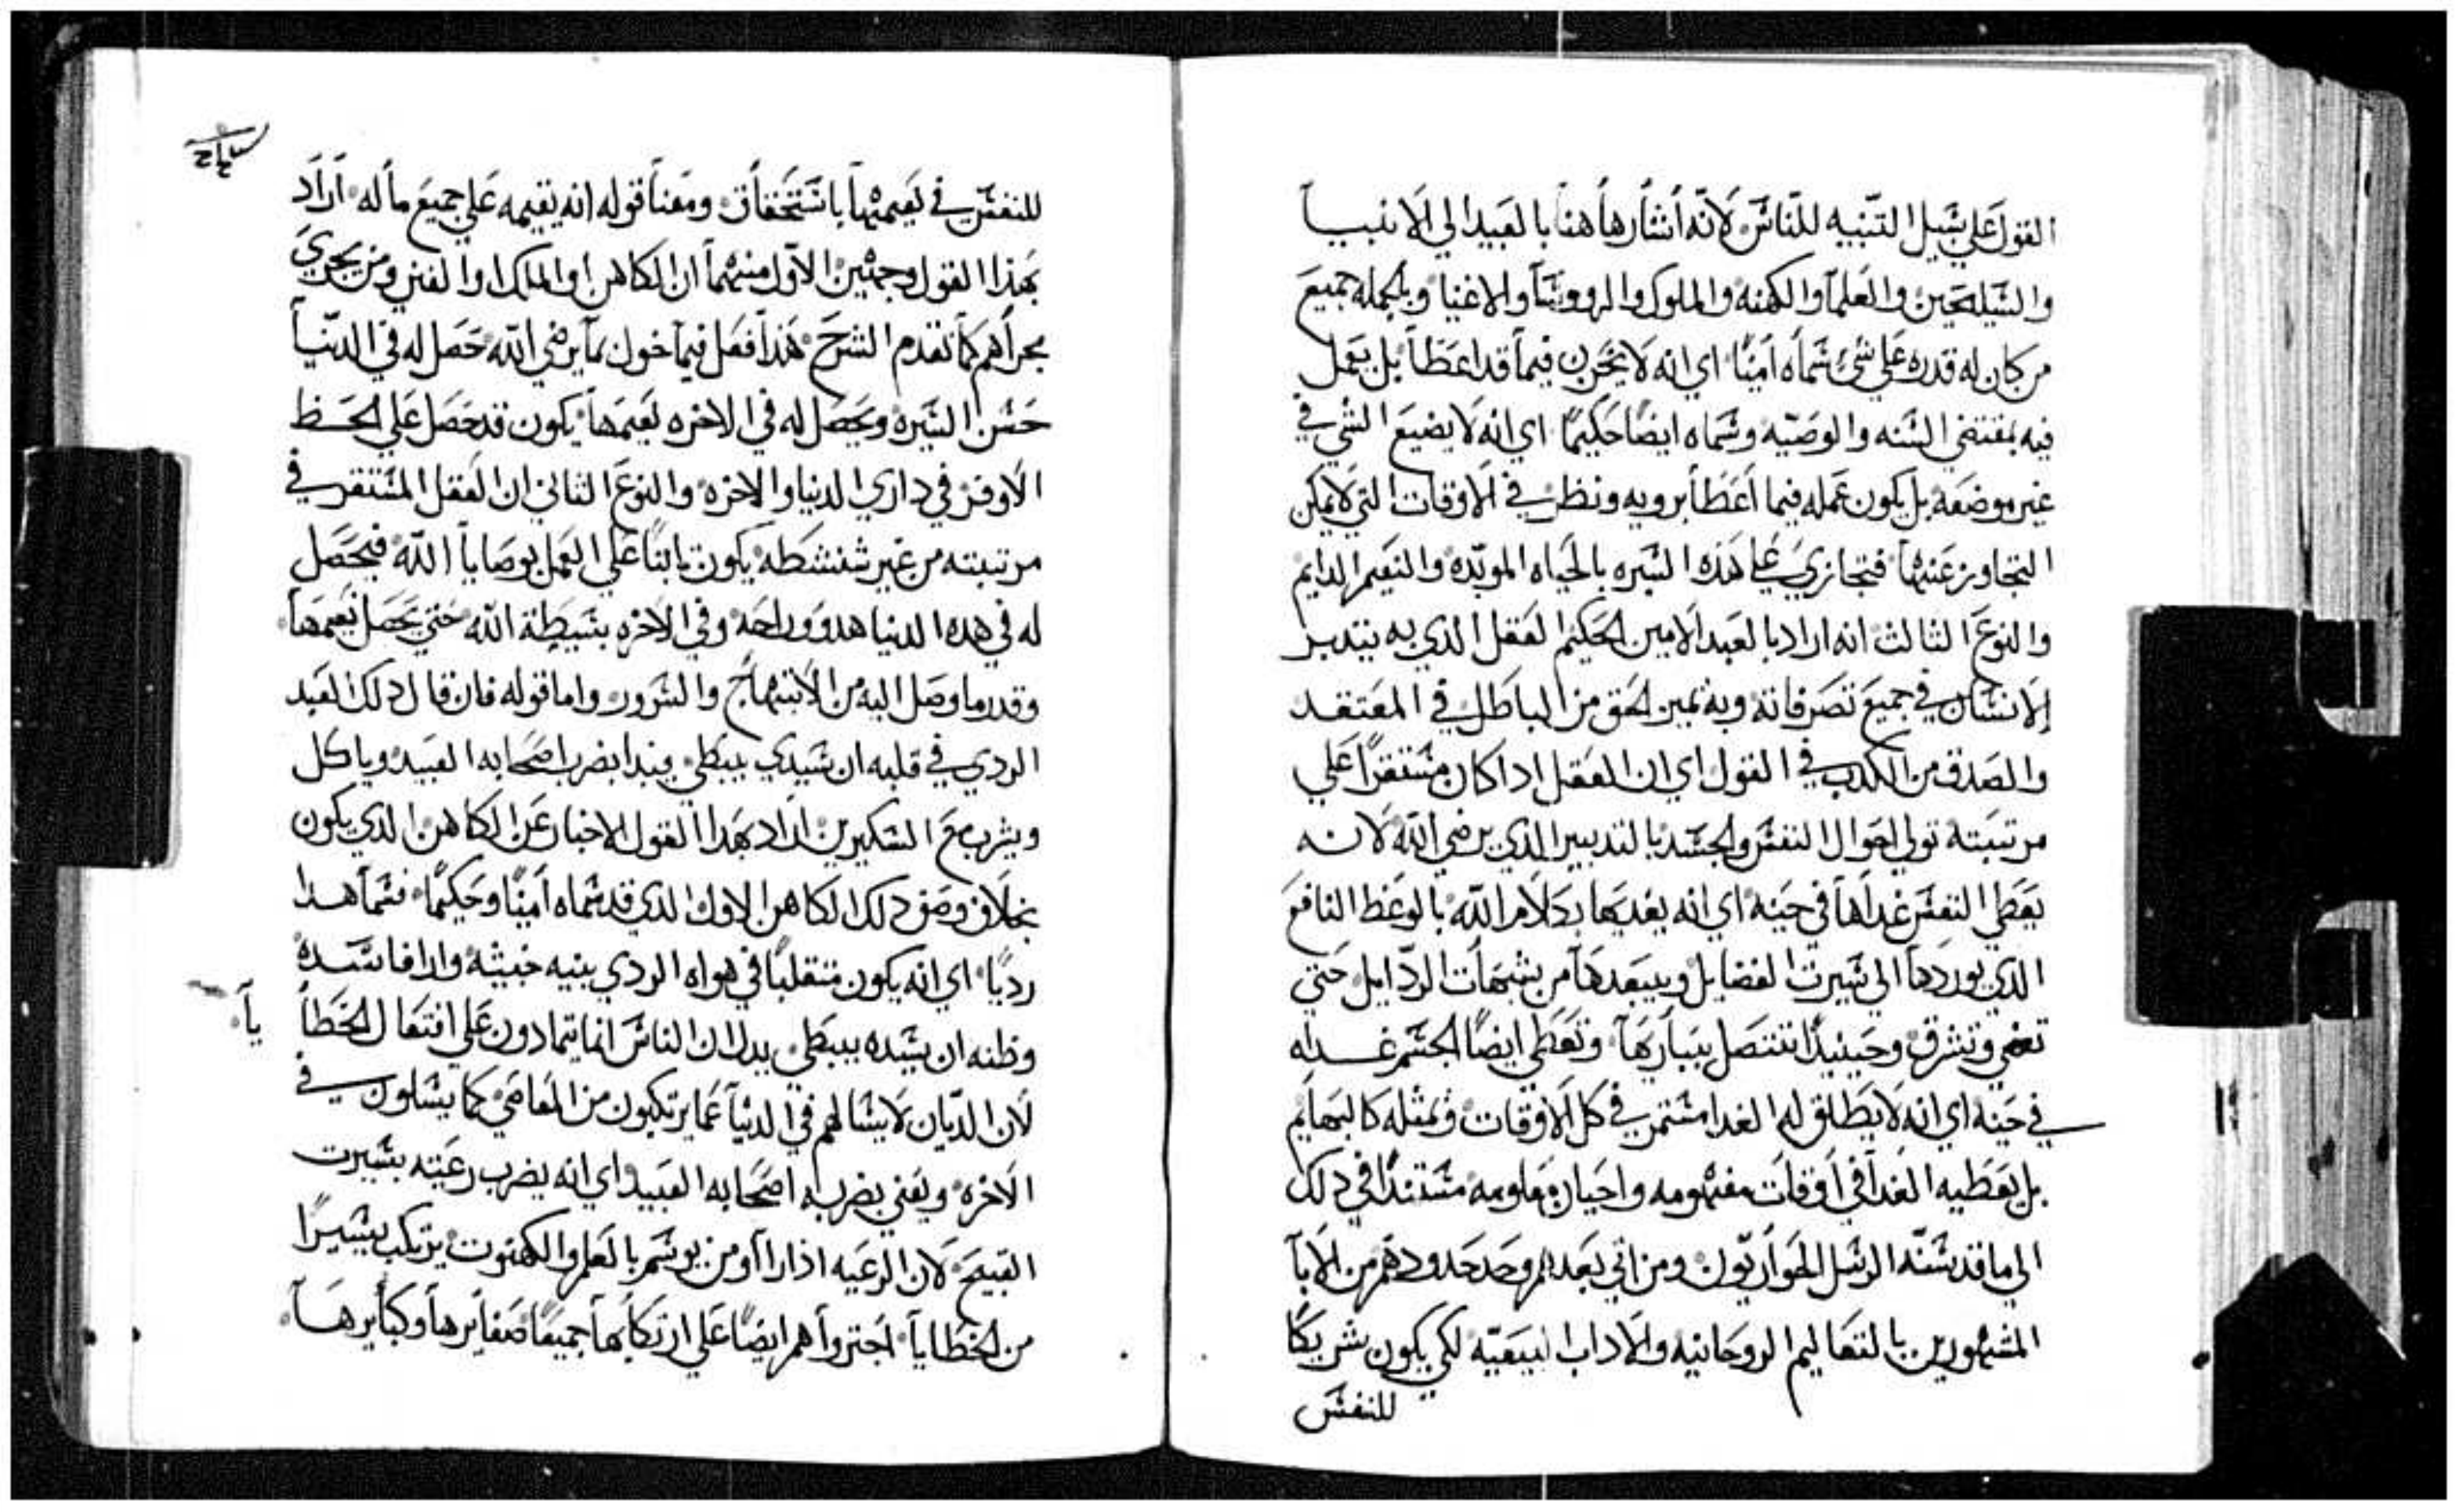 القول على سبيل التنبيه للناس لانه اشار هاهنا بالعبيد الي الانبيا
والسليحين والعلما والكهنه والملوك والرووسا والاغنيا وبالجمله جميع
من كان له قدره علي شي سماه امينًا اي انه لا يخون فيما قد اعطا بل يعمل
فيه بمقتضى السنه والوصيه وسماه ايضًا حكيمًا اي انه لا يضيع الشي في
غير موضعه بل يكون عمله فيما اعطا برويه ونظر في الاوقات التي لا يمكن
التجاوز عنها فيجازي على هذه السيره بالحياه الموبده والنعيم الدايم
والنوع الثالث انه اراد بالعبد الامين الحكيم العقل الذي به يتدبر
الانسان في جميع تصرفاته وبه تميز الحق من الباطل في المعتقد
والصدق من الكدب في القول اي ان العقل ادا كان مستقرًا علي
مرتبته تولي احوال النفس والجسد بالتدبير الذي يرضي الله لانه
يعطي النفس غداها في حينه اي انه يغديها بكلام الله بالوعظ النافع
الذي يوردها الي سيرت الفضايل ويبعدها من شبهات الردايل حتي
تضي وتشرق وحينيدًا تتصل بباريها وتعطي ايضًا الجسم غداه
في حينه اي انه لا يطلق له الغدا مستمر في كل الاوقات وتمثله كالبهايم
بل يعطيه الغدا في اوقات مفهومه واحيان معلومه مستندًا في دلك
الي ما قد سنه الرسل الحواريون ومن اتي بعدهم وحد حدودهم من الابا
المشهورين بالتعاليم الروحانيه والاداب البيعيه لكي يكون شريكًا
للنفس
للنفس في نعيمها باستحقاق ومعنا قوله انه يقيمه علي جميع ماله اراد
بهذا القول وجهين الاول منهما ان الكاهن او الملك او الغني ومن يجري
مجراهم كما تقدم الشرح هذا فعل فيما خول بما يرضي الله حصل له في الدنيا
حسن السيره ويحصل له في الاخره نعيمها يكون قد حصل علي الحظ
الاوفر في داري الدنيا والاخره والنوع الثاني ان العقل المستقر في
مرتبته من غير شنشطه يكون ثابتًا علي العمل بوصايا الله فيحصل
له في هده الدنيا هدوو وراحه وفي الاخره بسيطة الله حتي يحصل نعيمها
وقدر ما وصل اليه من الابتهاج والسرور واما قوله فان قال دلك العبد
الردي في قلبه ان سيدي يبطي ويبدا يضرب اصحابه العبيد وياكل
ويشرب مع السكيرين اراد بهدا القول الاخبار عن الكاهن الدي يكون
بخلاف وصف دلك الكاهن الاول الدي قد سماه امينًا وحكيمًا فسما هدا
رديًا اي انه يكون متقلبًا في هواه الردي بنيه خبيثه وارا فاسده
وظنه ان سيده يبطي يدل ان الناس انما يتمادون علي افتعال الخطايا
لان الديان لا يسالهم في الدنيا عما يرتكبون من المعاصي كما يسلون في
الاخره ويعني بضربه اصحابه العبيد اي انه يضرب رعيته بسيرت
القبيح لان الرعيه اذا راو من يوسم بالعلم والكهنوت يرتكب يسيرًا
من الخطايا اجتروا هم ايضًا علي ارتكابها جميعًا صغايرها وكبايرها